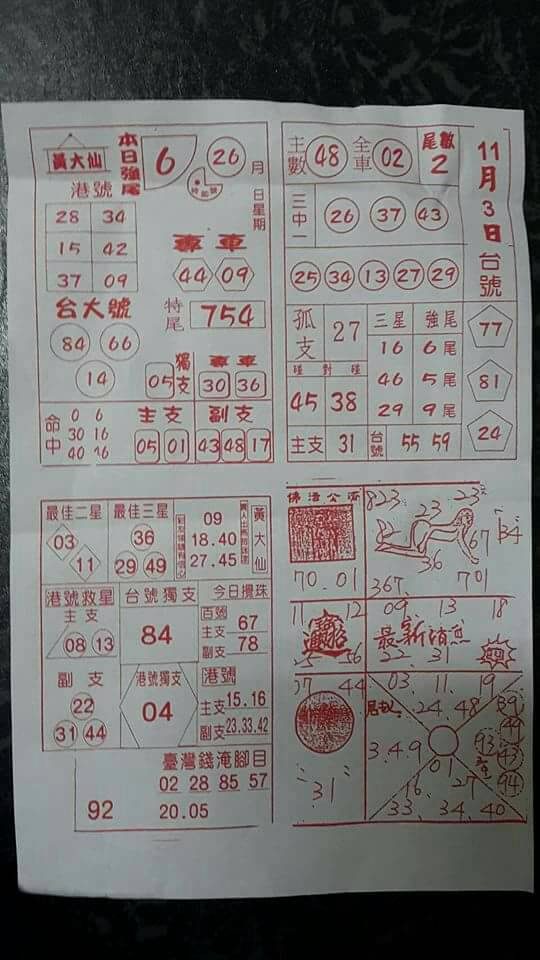 黃大仙
本日強尾
6
26
月
日
星期
港號
28 34
15 42
37 09
專車
44 09
台大號
84 66
14
特尾
754
05
獨支
專車
30 36
命中
0 6
30 16
40 26
主支
05 01
副支
43 48 17
主數
48
全車
02
尾數
2
11月3日
台號
77
81
24
三中一
26 37 43
25 34 13 27 29
孤支
27
三星 強尾
16 6尾
46 5尾
29 9尾
碰對碰
45 38
主支 31
台號 55 59
最佳二星
03
11
最佳三星
36
29 49
09
18.40
27.45
黃大仙
港號救星
主支
08 13
副支
22
31 44
台號獨支
84
港號獨支
04
今日攪珠
百號
主支 67
副支 78
港號
主支 15.16
副支 23.33.42
臺灣錢淹腳目
02 28 85 57
92
20.05
佛活公濟
70.01
823
23
23
67
34
36
367
701
11 12
招財進寶
56
09 13 18
最新消息
22 31
07 44
31
03. 11. 19
24.48
39
44
3.4.9
93
43
94
01
16
27
33. 34. 40